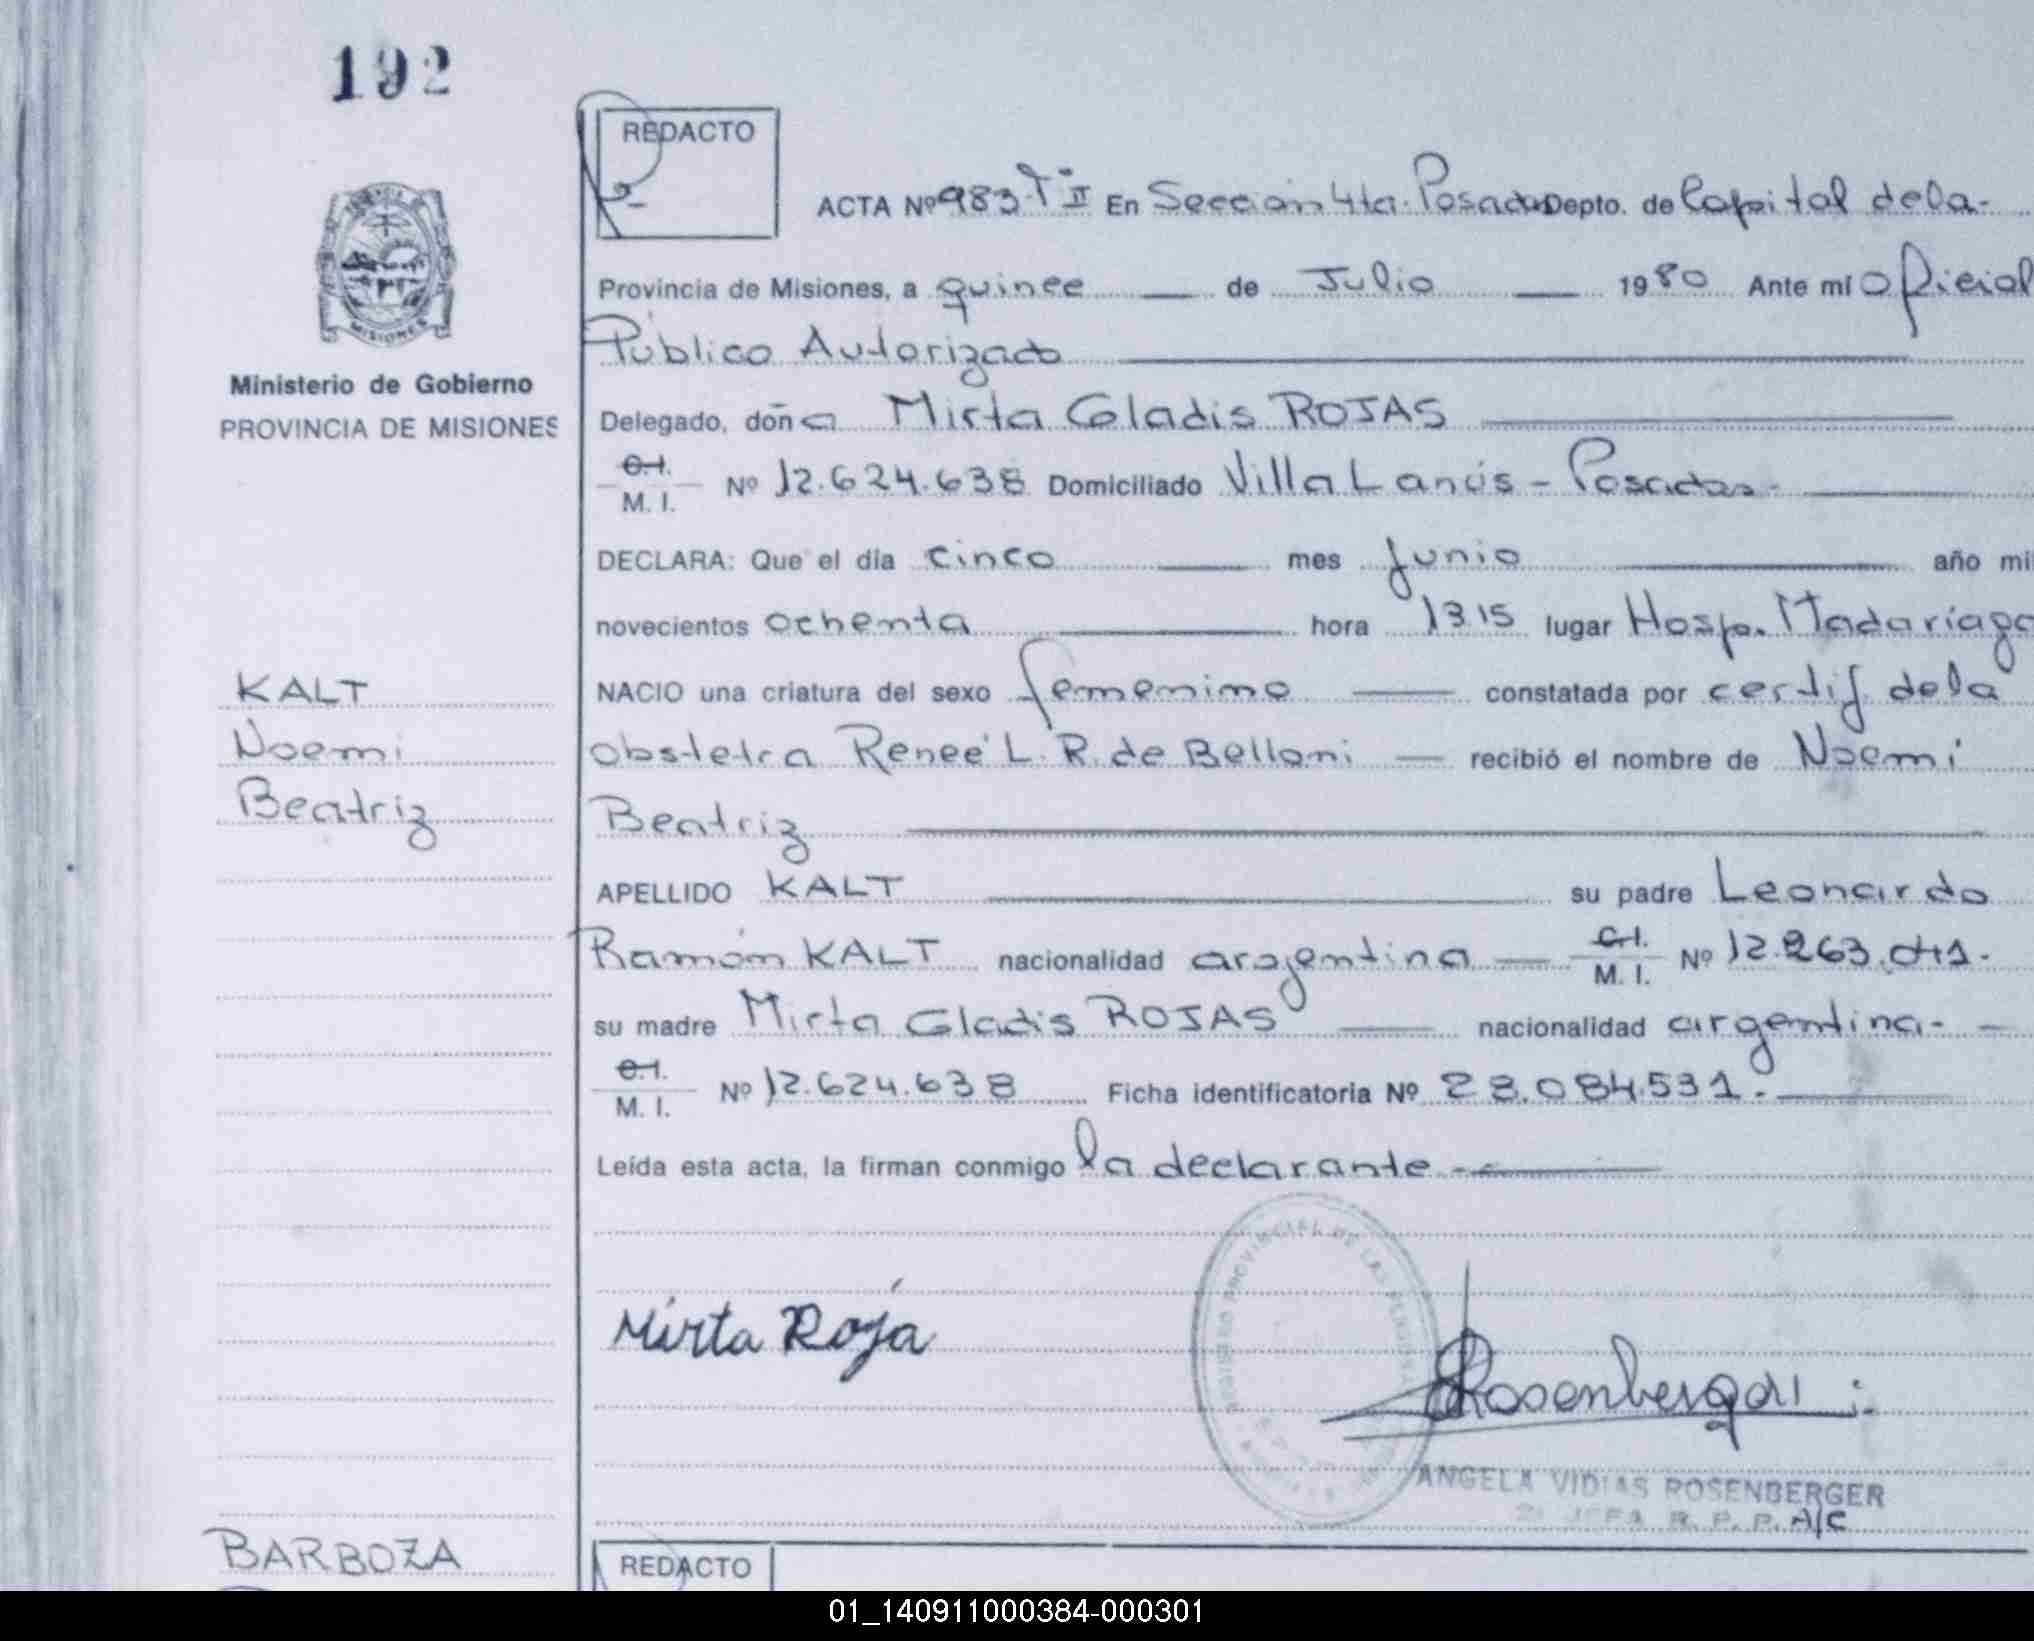 192
REDACTO
ACTA Nº 983 Tº II En Sección 4ta. Posadas Depto. de Capital de la-
Provincia de Misiones, a quince de Julio 1980 Ante mí Oficial
Público Autorizado
Ministerio de Gobierno
PROVINCIA DE MISIONES
Delegado, doña Mirta Gladis ROJAS
C.I.
M. I. Nº 12.624.638 Domiciliado Villa Lanús - Posadas-
DECLARA: Que el día cinco mes Junio año mil
novecientos ochenta hora 1315 lugar Hosp. Madariaga
KALT
Noemi
Beatriz
NACIO una criatura del sexo femenino constatada por certif. de la
obstetra Reneé L. R. de Belloni recibió el nombre de Noemi
Beatriz
APELLIDO KALT su padre Leonardo
Ramón KALT nacionalidad argentina C.I.
M. I. Nº 12.263.041-
su madre Mirta Gladis ROJAS nacionalidad argentina-
C.I.
M. I. Nº 12.624.638 Ficha identificatoria Nº 28.084.531.
Leída esta acta, la firman conmigo la declarante
Mirta Roja
REGISTRO PROVINCIAL DE LAS PERSONAS
Rosenberger
ANGELA VIDIAS ROSENBERGER
JEFA R. P. P. A/C
BARBOZA
REDACTO
01_140911000384-000301